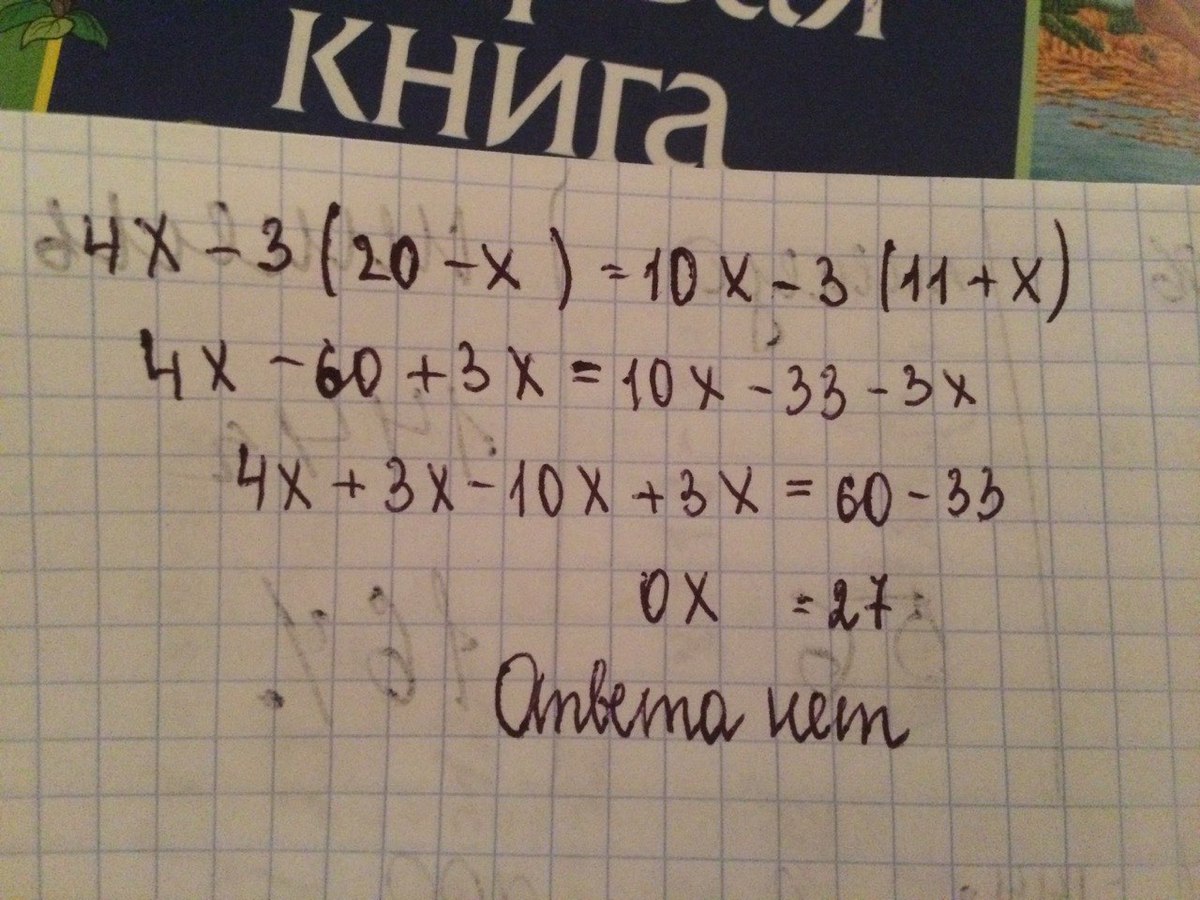 книга
4x - 3 (20 - x) = 10x - 3 (11 + x)
4x - 60 + 3x = 10x - 33 - 3x
4x + 3x - 10x + 3x = 60 - 33
0x = 27
Ответа нет